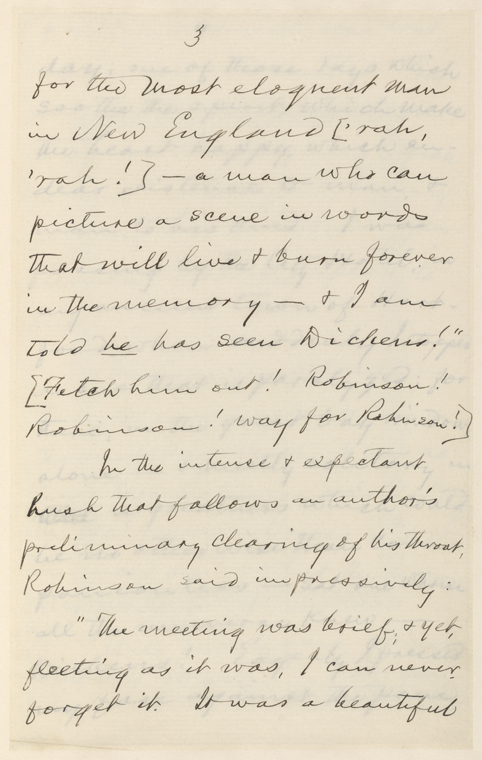 3
for the most eloquent man
in New England ['rah,
'rah!] — a man who can
picture a scene in words
that will live & burn forever
in the memory — & I am
told he has seen Dickens!"
[Fetch him out! Robinson!
Robinson! way for Robinson!]
In the intense & expectant
hush that follows an author's
preliminary clearing of his throat,
Robinson said impressively:
"The meeting was brief, & yet,
fleeting as it was, I can never
forget it. It was a beautiful